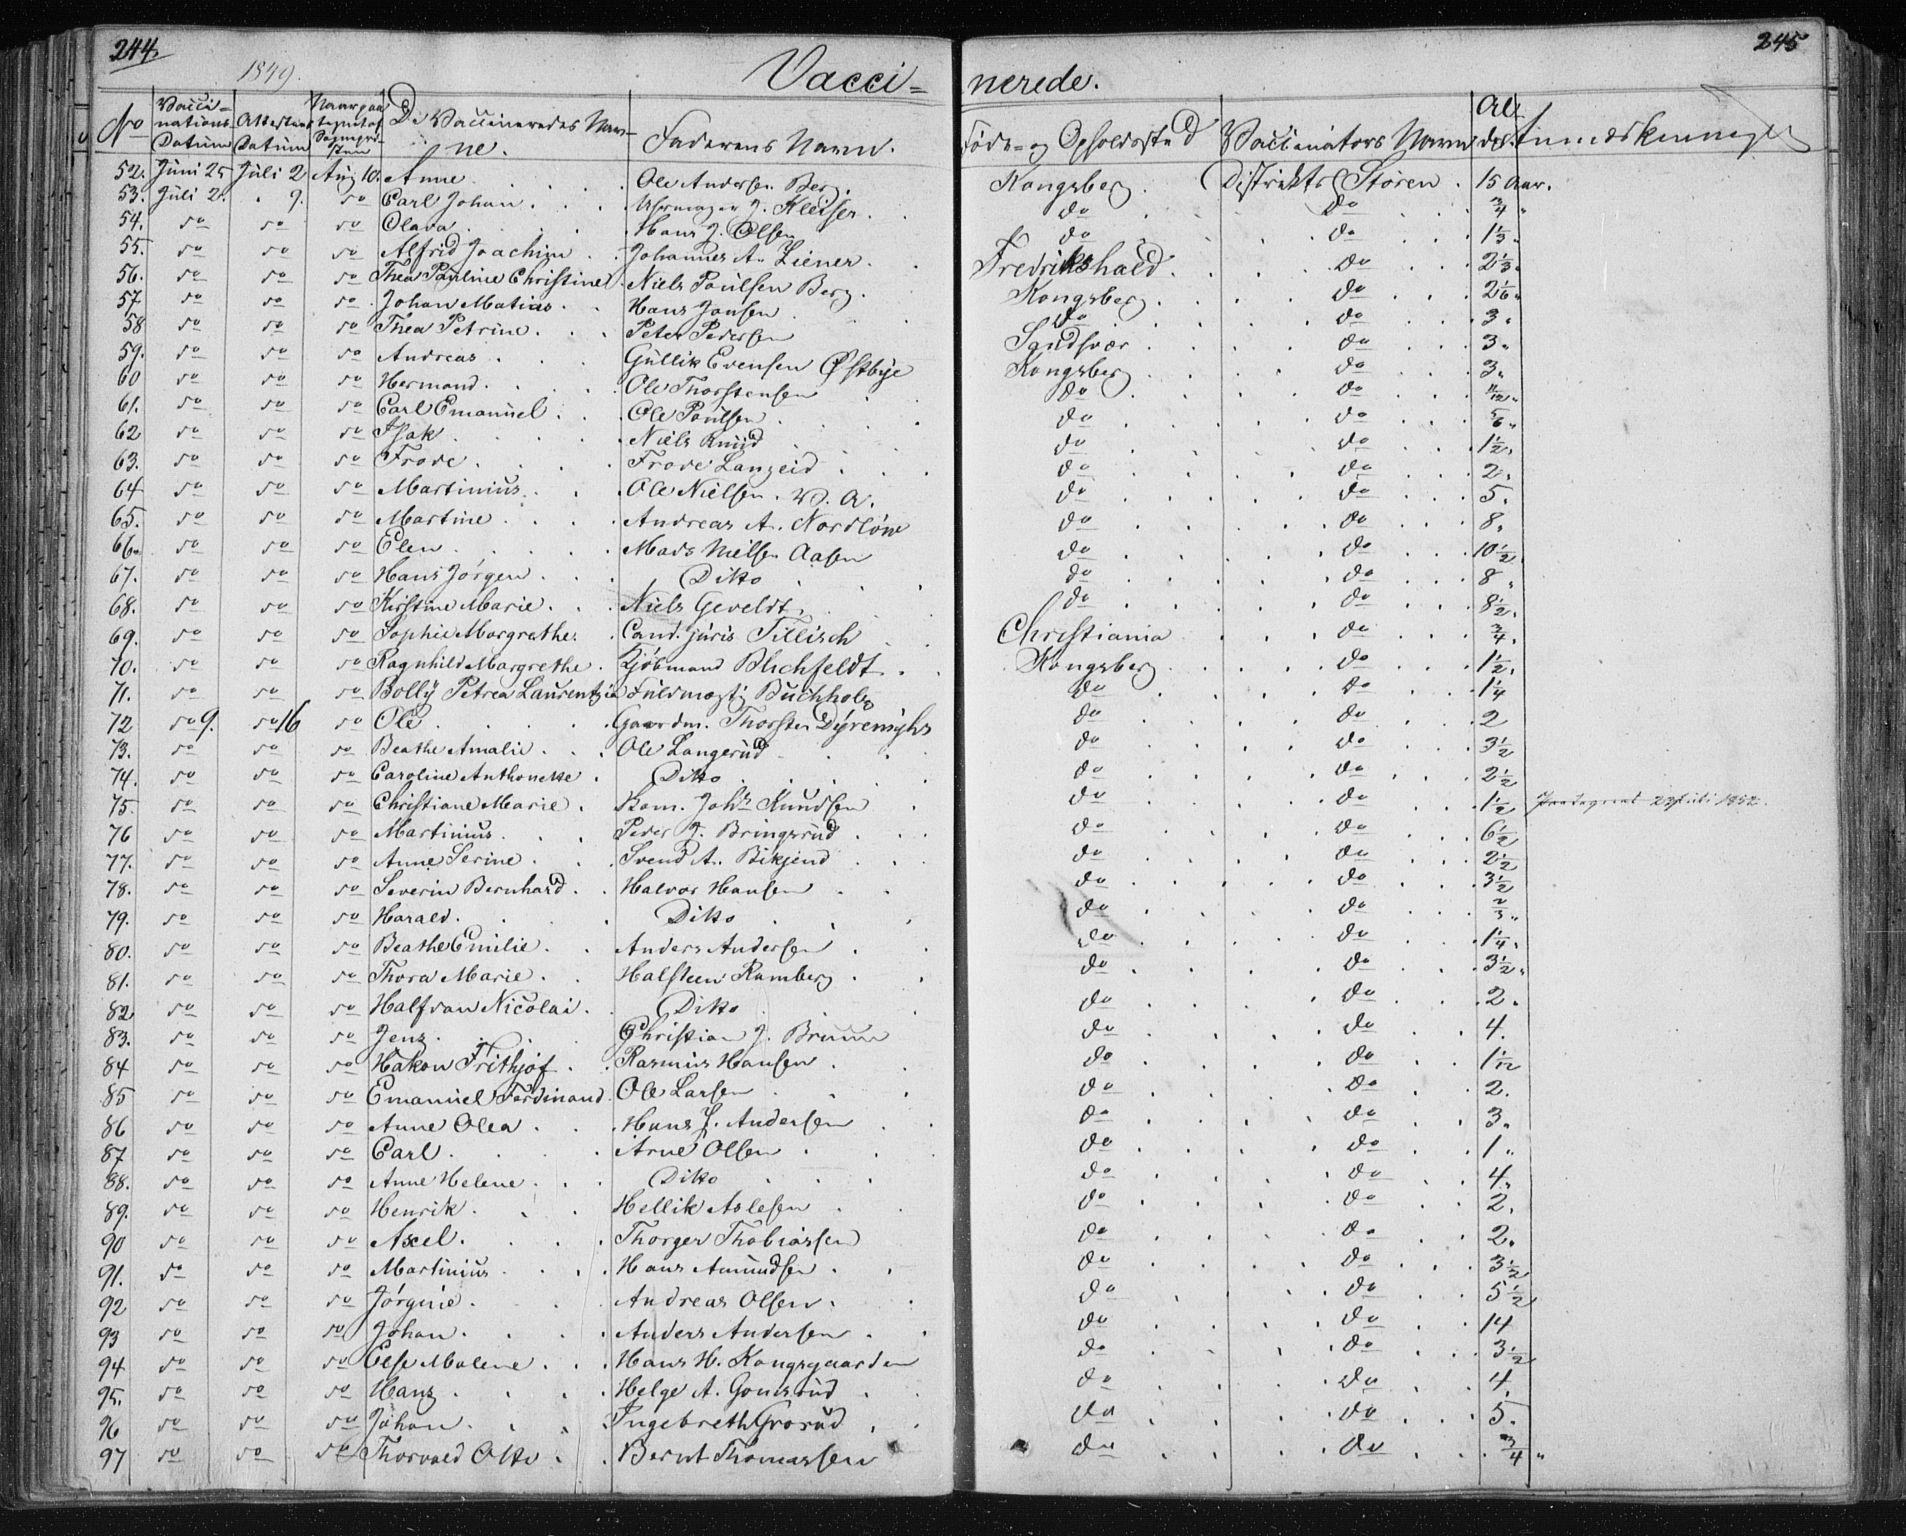 244.
245
1849.
Vacci= nerede.
No Vacci=nations Datum Attestens Datum De Vaccineredes Nav=ne. Faderens Navn. Føde= og Opholdssted Vaccinators Navn Al der Anmærkninger
52. Juni 25 Juli 2 Aug 10. Anne Ole Andersen Berg. Kongsberg Distrikts Støren 15 Aar.
53. Juli 2. 9. do Carl Johan J. Kleiser do do 3/4 "
54. do do do Olava Hans J. Olsen do do 1 1/3 "
55. do do do Alfrid Joachim Johannes A. Liener Fredrikshald do 2 1/3 "
56. do do do Thea Pauline Christine Niels Poulsen Berg Kongsberg do 2 1/6 "
57 do do do Johan Matias Hans Jansen do do 3 "
58 do do do Thea Petrine Peter Pedersen Sandsvær do 3 "
59. do do do Andreas Gullik Evensen Østbye Kongsberg do 3 "
60 do do do Hermand Ole Thorstensen do do 11/12 "
61. do do do Carl Emanuel Ole Poulsen do do 5/6 "
62 do do do Isak Niels Knud do do 1 1/2 "
63. do do do Frode Frode Langeid do do 2 "
64 do do do Martinius Ole Nielsen V. A. do do 5.
65. do do do Martine Andreas A. Nordløw do do 8 "
66. do do do Elen Mads Nielsen Aasen do do 10 1/2
67. do do do Hans Jørgen Ditto do do 8 "
68. do do do Kirstine Marie Niels Geveldt do do 8 1/2 "
69. do do do Sophie Margrethe Cand. juris Tillisch Christiania do 3/4 "
70. do do do Ragnhild Margrethe Kjøbmand Blichfeldt Kongsberg do 1 1/2 "
71. do do do Bolly Petrea Laurentzia Fuldmægt. Buchholz do do 1 1/4
72 do 9. do 16 do Ole Gaardm. Thorsten Dyremyhr do do 2
73. do do do Beathe Amalie Ole Langerud do do 3 1/2
74. do do do Caroline Anthonette Ditto do do 2 1/2
75. do do do Christiane Marie Kom. Johs Knudsen do do 1 1/2 1852.
76 do do do Martinius Peder J. Bringsrud do do 6 1/2
77. do do do Anne Serine Svend A. Bikjend do do 2 1/2
78. do do do Severin Bernhard Halvor Hansen do do 3 1/2
79. do do do Harald Ditto do do 2/3 "
80. do do do Beathe Emilie Anders Andersen do do 1 1/4 "
81. do do do Thora Marie Halsteen Ramberg do do 3 1/2 "
82 do do do Halfdan Nicolai Ditto do do 2 "
83. do do do Jens Christian J. Bruun do do 4.
84 do do do Håkon Frithjof Rasmus Hansen do do 1 1/12
85 do do do Emanuel Ferdinand Ole Larsen do do 2.
86 do do do Anne Olea Hans J. Andersen do do 3 "
87 do do do Carl Arne Olsen do do 1 "
88. do do do Anne Helene Ditto do do 4 "
89. do do do Henrik Hellik Aslesen do do 2.
90 do do do Axel Thorger Thobiassen do do 2 "
91. do do do Martinius Hans Amundsen do do 3 1/2
92 do do do Jørgine Andreas Olsen do do 5 1/2
93 do do do Johan Anders Andersen do do 14
94 do do do Else Malene Hans H. Kongsgaarden do do 3 1/2
95. do do do Hans Helge A. Gomsrud do do 4.
96 do do do Johan Ingebreth Grosrud do do 5.
97 do do do Thorvald Otto Bernt Thomassen do do 3/4 "